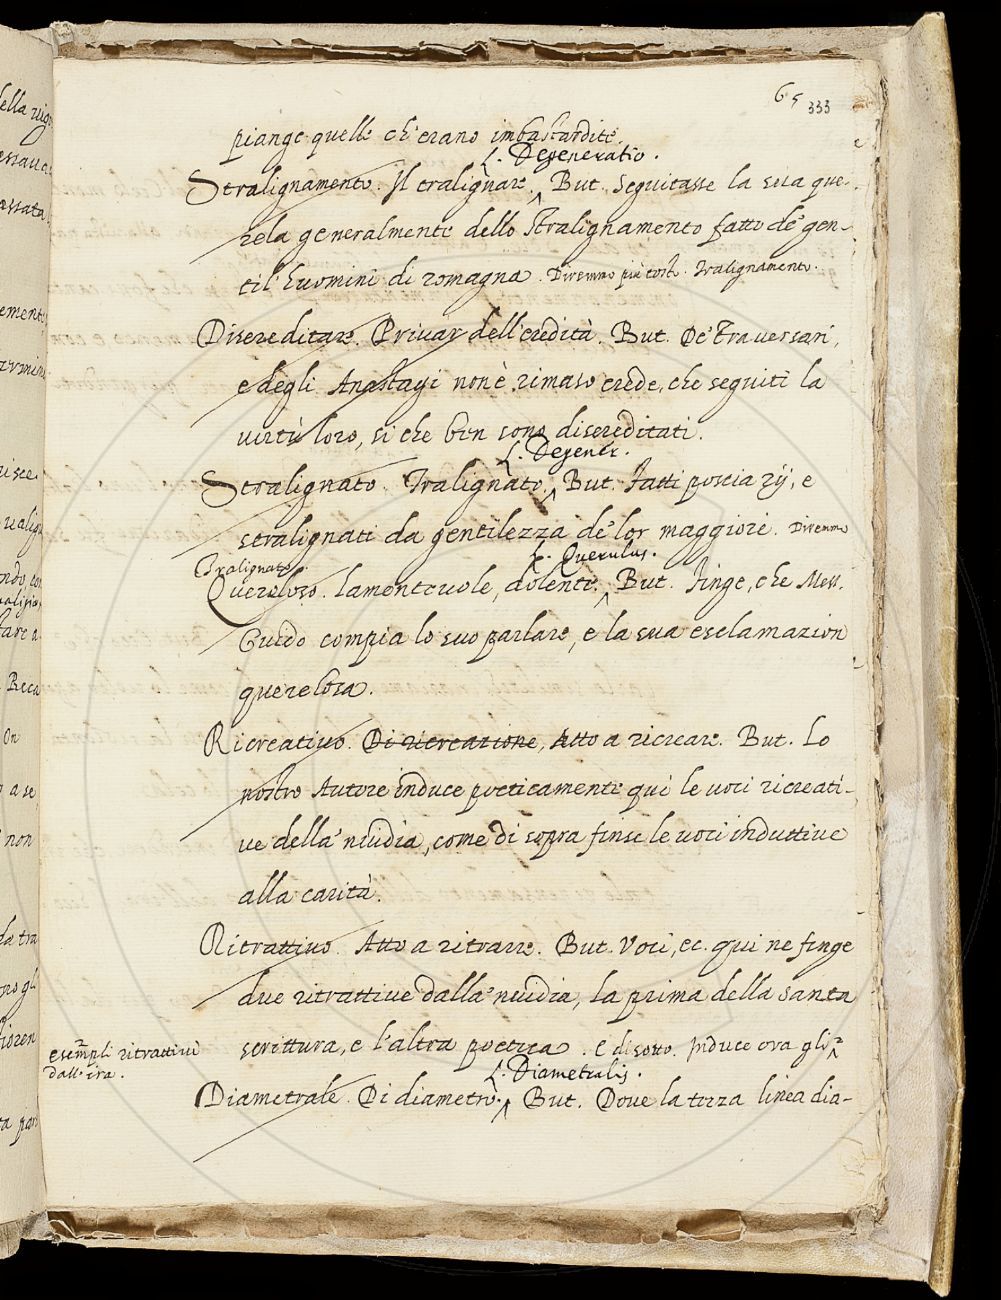 65 333
piange quelle ch'erano imbastardite.
L. Degeneratio.
Stralignamento. Il tralignare. But. Seguitasse la sua que-
rela generalmente dello stralignamento fatto de' gen-
til'huomini di romagna. Diremmo più tosto Tralignamento.
Disereditare. Privar dell'eredità. But. De' Traversari,
e degli Anastagi non è rimaso erede, che seguiti la
virtù loro, si che ben sono disereditati.
L. Degener.
Stralignato. Tralignato, But. Fatti poscia rÿ, e
stralignati da gentilezza de' lor maggiori. Diremmo
Tralignato.
L. Querulus.
Quereloso. Lamentevole, dolente. But. Finge, che Mess.
Guido compia lo suo parlare, e la sua esclamazion
querelosa.
Ricreativo. Di ricreazione, Atto a ricreare. But. Lo
nostro Autore induce poeticamente qui le voci ricreati-
ve della 'nvidia, come di sopra finse le voci induttive
alla carità.
Ritrattivo. Atto a ritrarre. But. Voci, ec. qui ne finge
due ritrattive dalla 'nvidia, la prima della santa
scrittura, e l'altra poetica. E di sotto. Induce ora gli
esempli ritrattivi
dall'ira.
L. Diametralis.
Diametrale. Di diametro. But. Dove la terza linea dia-